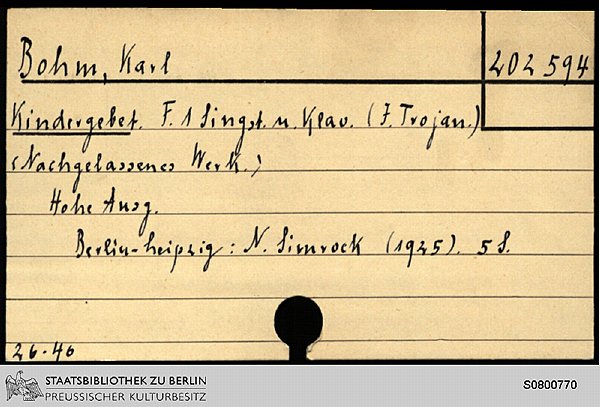 Bohm, Karl
202 594
Kindergebet. F. 1 Singst. u. Klav. (J. Trojan.)
<Nachgelassenes Werk.>
Hohe Ausg.
Berlin-Leipzig: N. Simrock (1925). 5 S.
26.46
STAATSBIBLIOTHEK ZU BERLIN
PREUSSISCHER KULTURBESITZ
S0800770